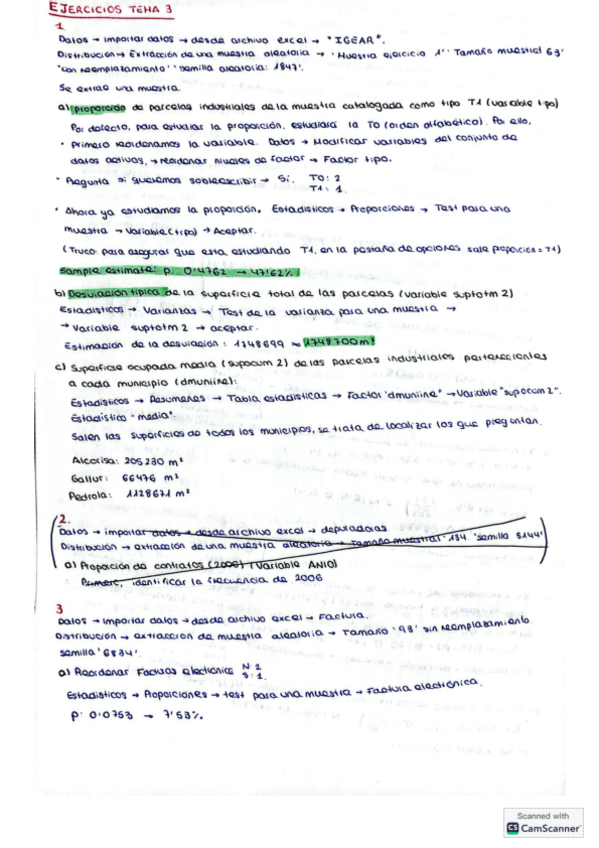 EJERCICIOS TEMA 3
1
Datos → importar datos → desde archivo excel → "IGEAR".
Distribución → Extracción de una muestra aleatoria → 'Muestra ejercicio 1' 'Tamaño muestral 63'
'con reemplazamiento' 'semilla aleatoria: 1847'.
Se extrae una muestra.
a) proporción de parcelas industriales de la muestra catalogada como tipo T1 (variable tipo)
Por defecto, para estudiar la proporción, estudiará la T0 (orden alfabético). Por ello,
• Primero reordenamos la variable. Datos → Modificar variables del conjunto de
datos activos, → reordenar niveles de factor → Factor tipo.
• Pregunta si queremos sobreescribir → Sí. T0: 2
T1: 1
• Ahora ya estudiamos la proporción. Estadísticos → Proporciones → Test para una
muestra → Variable (tipo) → Aceptar.
(Truco: para asegurar que esta estudiando T1, en la pestaña de opciones sale proporción = T1)
Sample estimate: p. 0'4762 → 47'62%
b) Desviación típica de la superficie total de las parcelas (variable suptotm2)
Estadísticos → Varianzas → Test de la varianza para una muestra →
→ Variable suptotm2 → aceptar.
Estimación de la desviación: 1748699 ≈ 1748700m²
c) Superficie ocupada media (supocum2) de las parcelas industriales pertenecientes
a cada municipio (dmuniine):
Estadísticos → Resúmenes → Tabla estadísticas → Factor "dmuniine" → Variable "supocum2".
Estadístico "media".
Salen las superficies de todos los municipios, se trata de localizar los que preguntan.
Alcorisa: 205280 m²
Gallur: 66476 m²
Pedrola: 1128671 m²
2.
Datos → importar datos → desde archivo excel → depuradoras.
Distribución → extracción de una muestra aleatoria → Tamaño muestral '134. 'semilla 5144'
a) Proporción de contratos (2006) (Variable ANIO)
Primero, identificar la frecuencia de 2006
3
Datos → importar datos → desde archivo excel → Factura.
Distribución → extracción de muestra aleatoria → Tamaño '93' sin reemplazamiento
semilla '6834'.
a) Reordenar Facturas electrónica N: 2
S: 1.
Estadísticos → Proporciones → test para una muestra → Factura electrónica.
p: 0.0753 → 7'53%.
Scanned with
CS CamScanner